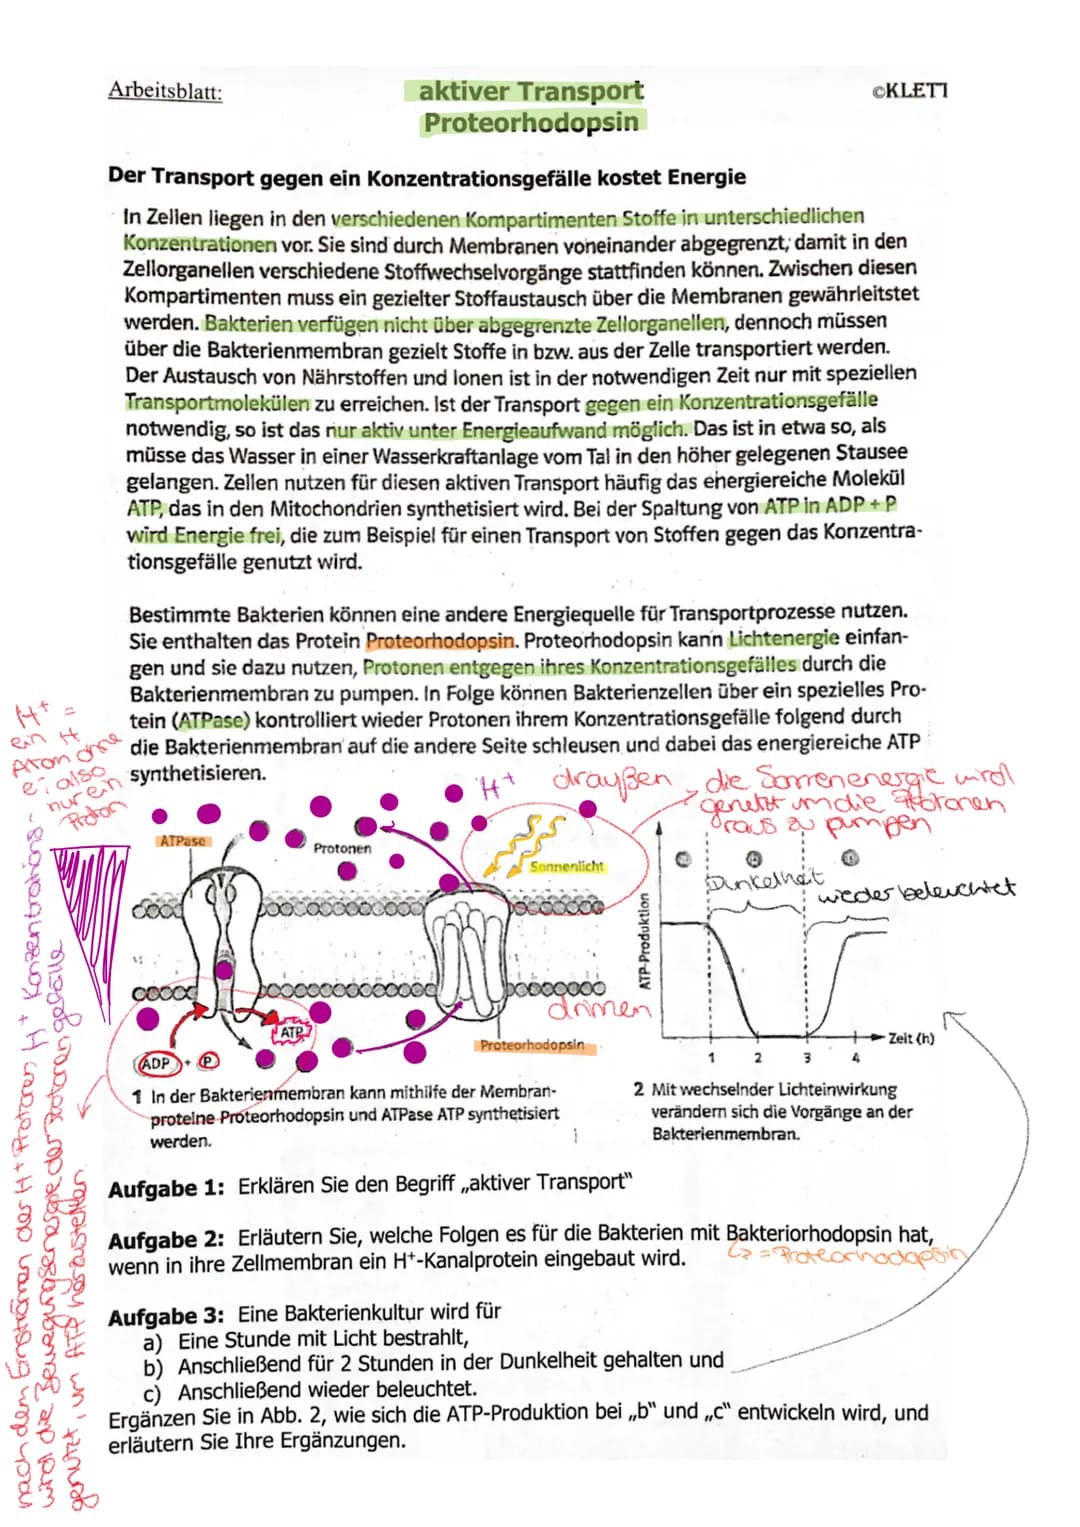 Arbeitsblatt:
aktiver Transport
©KLETT
Proteorhodopsin
Der Transport gegen ein Konzentrationsgefälle kostet Energie
In Zellen liegen in den verschiedenen Kompartimenten Stoffe in unterschiedlichen
Konzentrationen vor. Sie sind durch Membranen voneinander abgegrenzt, damit in den
Zellorganellen verschiedene Stoffwechselvorgänge stattfinden können. Zwischen diesen
Kompartimenten muss ein gezielter Stoffaustausch über die Membranen gewährleitstet
werden. Bakterien verfügen nicht über abgegrenzte Zellorganellen, dennoch müssen
über die Bakterienmembran gezielt Stoffe in bzw. aus der Zelle transportiert werden.
Der Austausch von Nährstoffen und Ionen ist in der notwendigen Zeit nur mit speziellen
Transportmolekülen zu erreichen. Ist der Transport gegen ein Konzentrationsgefälle
notwendig, so ist das nur aktiv unter Energieaufwand möglich. Das ist in etwa so, als
müsse das Wasser in einer Wasserkraftanlage vom Tal in den höher gelegenen Stausee
gelangen. Zellen nutzen für diesen aktiven Transport häufig das energiereiche Molekül
ATP, das in den Mitochondrien synthetisiert wird. Bei der Spaltung von ATP in ADP + P
wird Energie frei, die zum Beispiel für einen Transport von Stoffen gegen das Konzentra-
tionsgefälle genutzt wird.
Bestimmte Bakterien können eine andere Energiequelle für Transportprozesse nutzen.
Sie enthalten das Protein Proteorhodopsin. Proteorhodopsin kann Lichtenergie einfan-
gen und sie dazu nutzen, Protonen entgegen ihres Konzentrationsgefälles durch die
Bakterienmembran zu pumpen. In Folge können Bakterienzellen über ein spezielles Pro-
tein (ATPase) kontrolliert wieder Protonen ihrem Konzentrationsgefälle folgend durch
die Bakterienmembran auf die andere Seite schleusen und dabei das energiereiche ATP
synthetisieren.
H+ =
ein H
Atom ohne
e- also
nur ein
Proton
H+
draußen
die Sonnenenergie wird
genutzt um die Protonen
raus zu pumpen
ATPase
Protonen
Sonnenlicht
Dunkelheit
wieder beleuchtet
ATP-Produktion
drinnen
ATP
ADP + P
Proteorhodopsin
Zeit (h)
1 2 3 4
H+ Konzentrations-
gefälle
nach dem Einströmen der H+ Protonen
wird die Bewegungsenergie der Protonen
genutzt, um ATP herzustellen
1 In der Bakterienmembran kann mithilfe der Membran-
proteine Proteorhodopsin und ATPase ATP synthetisiert
werden.
2 Mit wechselnder Lichteinwirkung
verändern sich die Vorgänge an der
Bakterienmembran.
Aufgabe 1: Erklären Sie den Begriff „aktiver Transport"
Aufgabe 2: Erläutern Sie, welche Folgen es für die Bakterien mit Bakteriorhodopsin hat,
wenn in ihre Zellmembran ein H+-Kanalprotein eingebaut wird.
↳ = Proteorhodopsin
Aufgabe 3: Eine Bakterienkultur wird für
a) Eine Stunde mit Licht bestrahlt,
b) Anschließend für 2 Stunden in der Dunkelheit gehalten und
c) Anschließend wieder beleuchtet.
Ergänzen Sie in Abb. 2, wie sich die ATP-Produktion bei „b" und „c" entwickeln wird, und
erläutern Sie Ihre Ergänzungen.